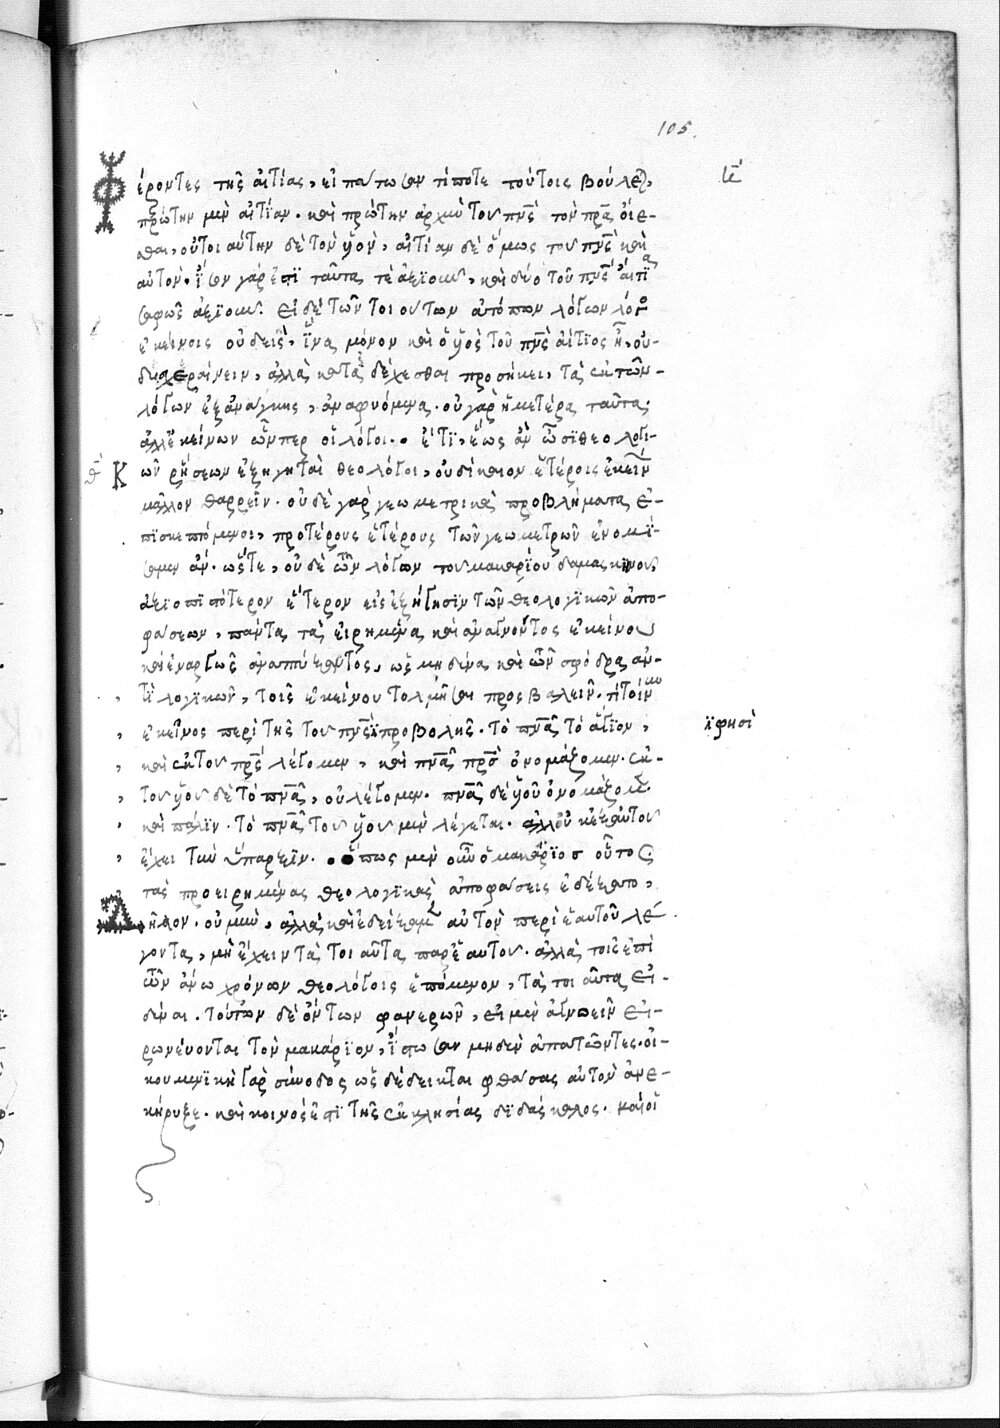 105.
Φέροντες τῆς αἰτίας, εἰ πάτωσαν τίποτε τούτοις βούλε
πρώτην μὲν αἰτίαν. καὶ πρώτην ἀρχὴν τοῦ πνς τὸν πρα οἴε-
σθαι, οὗτοι αὐτὴν δὲ τὸν υἱὸν, αἰτίαν δὲ ὅμως τοῦ πνς καὶ
αὐτὸν. γὰρ ἐπὶ ταῦτα τὲ ἀξιοῦν, καὶ δύο τοῦ πνς αἴτι
σαφῶς ἀξιοῦν. Εἰ δὲ τῶν τοιούτων ἀτόπων λόγων λόγος
ἐκείνοις οὐδεὶς, ἵνα μόνον καὶ ὁ υἱὸς τοῦ πνς αἴτιος ᾖ, οὐ-
δυσχεραίνειν, ἀλλὰ δέχεσθαι προσήκει, τὰ ἐκ τῶν
λόγων ἐξ ἀνάγκης, ἀναφυόμενα. οὐ γὰρ ἡμετέρα ταῦτα.
ἀλλ' ἐκείνων ὧνπερ οἱ λόγοι. ἔτι, ἕως ἂν ὦσι θεολογι-
κῶν ῥήσεων ἐξηγηταὶ θεολόγοι, οὐ δίκαιον ἑτέροις ἐκείνων
μᾶλλον θαρρεῖν. οὐδὲ γὰρ γεωμετρικὰ προβλήματα ἐ-
πισκεπτόμενοι, προτέρους ἑτέρους τῶν γεωμετρῶν ἐνομί-
σαμεν ἄν. ὥστε, οὐδὲ τῶν λόγων τοῦ μακαρίου δαμασκηνοῦ
ἀξιοπιστότερον ἕτερον εἰς ἐξήγησιν τῶν θεολογικῶν ἀπο-
φάσεων, πάντα τὰ εἰρημένα καὶ ἀναγνόντος ἐκείνου
καὶ ἐναργῶς ἀναπτύξαντος, ὡς μηδένα καὶ τῶν σφόδρα ἀν-
τιλογικῶν, τοῖς ἐκείνου τολμῆσαι προσβαλεῖν. τί τοίνυν
ἐκεῖνος περὶ τῆς τοῦ πνς προβολῆς. τὸ πνα τὸ ἅγιον,
ϊφησὶ
καὶ ἐκ τοῦ πρς λέγομεν, καὶ πνα πρς ὀνομάζομεν. ἐκ
τοῦ υἱοῦ δὲ τὸ πνα, οὐ λέγομεν. πνα δὲ υἱοῦ ὀνομάζομεν.
καὶ πάλιν. τὸ πνα τοῦ υἱοῦ μὲν λέγεται. ἀλλ' οὐκ ἐξ αὐτοῦ
ἔχει τὴν ὕπαρξιν. ὅπως μὲν οὖν ὁ μακάριος οὗτος
τὰς προειρημένας θεολογικὰς ἀποφάσεις ἐδέξατο,
Δῆλον. οὐ μὴν, ἀλλὰ καὶ ἐδείξαμεν αὐτὸν περὶ ἑαυτοῦ λέ-
γοντα, μὴ ἔχειν τὰ τοιαῦτα παρ' ἑαυτοῦ. ἀλλὰ τοῖς ἐπὶ
τῶν ἄνω χρόνων θεολόγοις ἑπόμενον, τὰ τοιαῦτα εἰ-
δέναι. τούτων δὲ ὄντων φανερῶν, εἰ μὲν ἀγνοεῖν εἰ-
ρωνεύονται τὸν μακάριον, ἴστωσαν μηδὲν ἀπατῶντες. οἰ-
κουμενικὴ γὰρ σύνοδος ὡς δέδεικται φθάσας αὐτὸν ἀνε-
κήρυξε. καὶ κοινὸς ἐπὶ τῆς ἐκκλησίας διδάσκαλος. καὶ οἱ